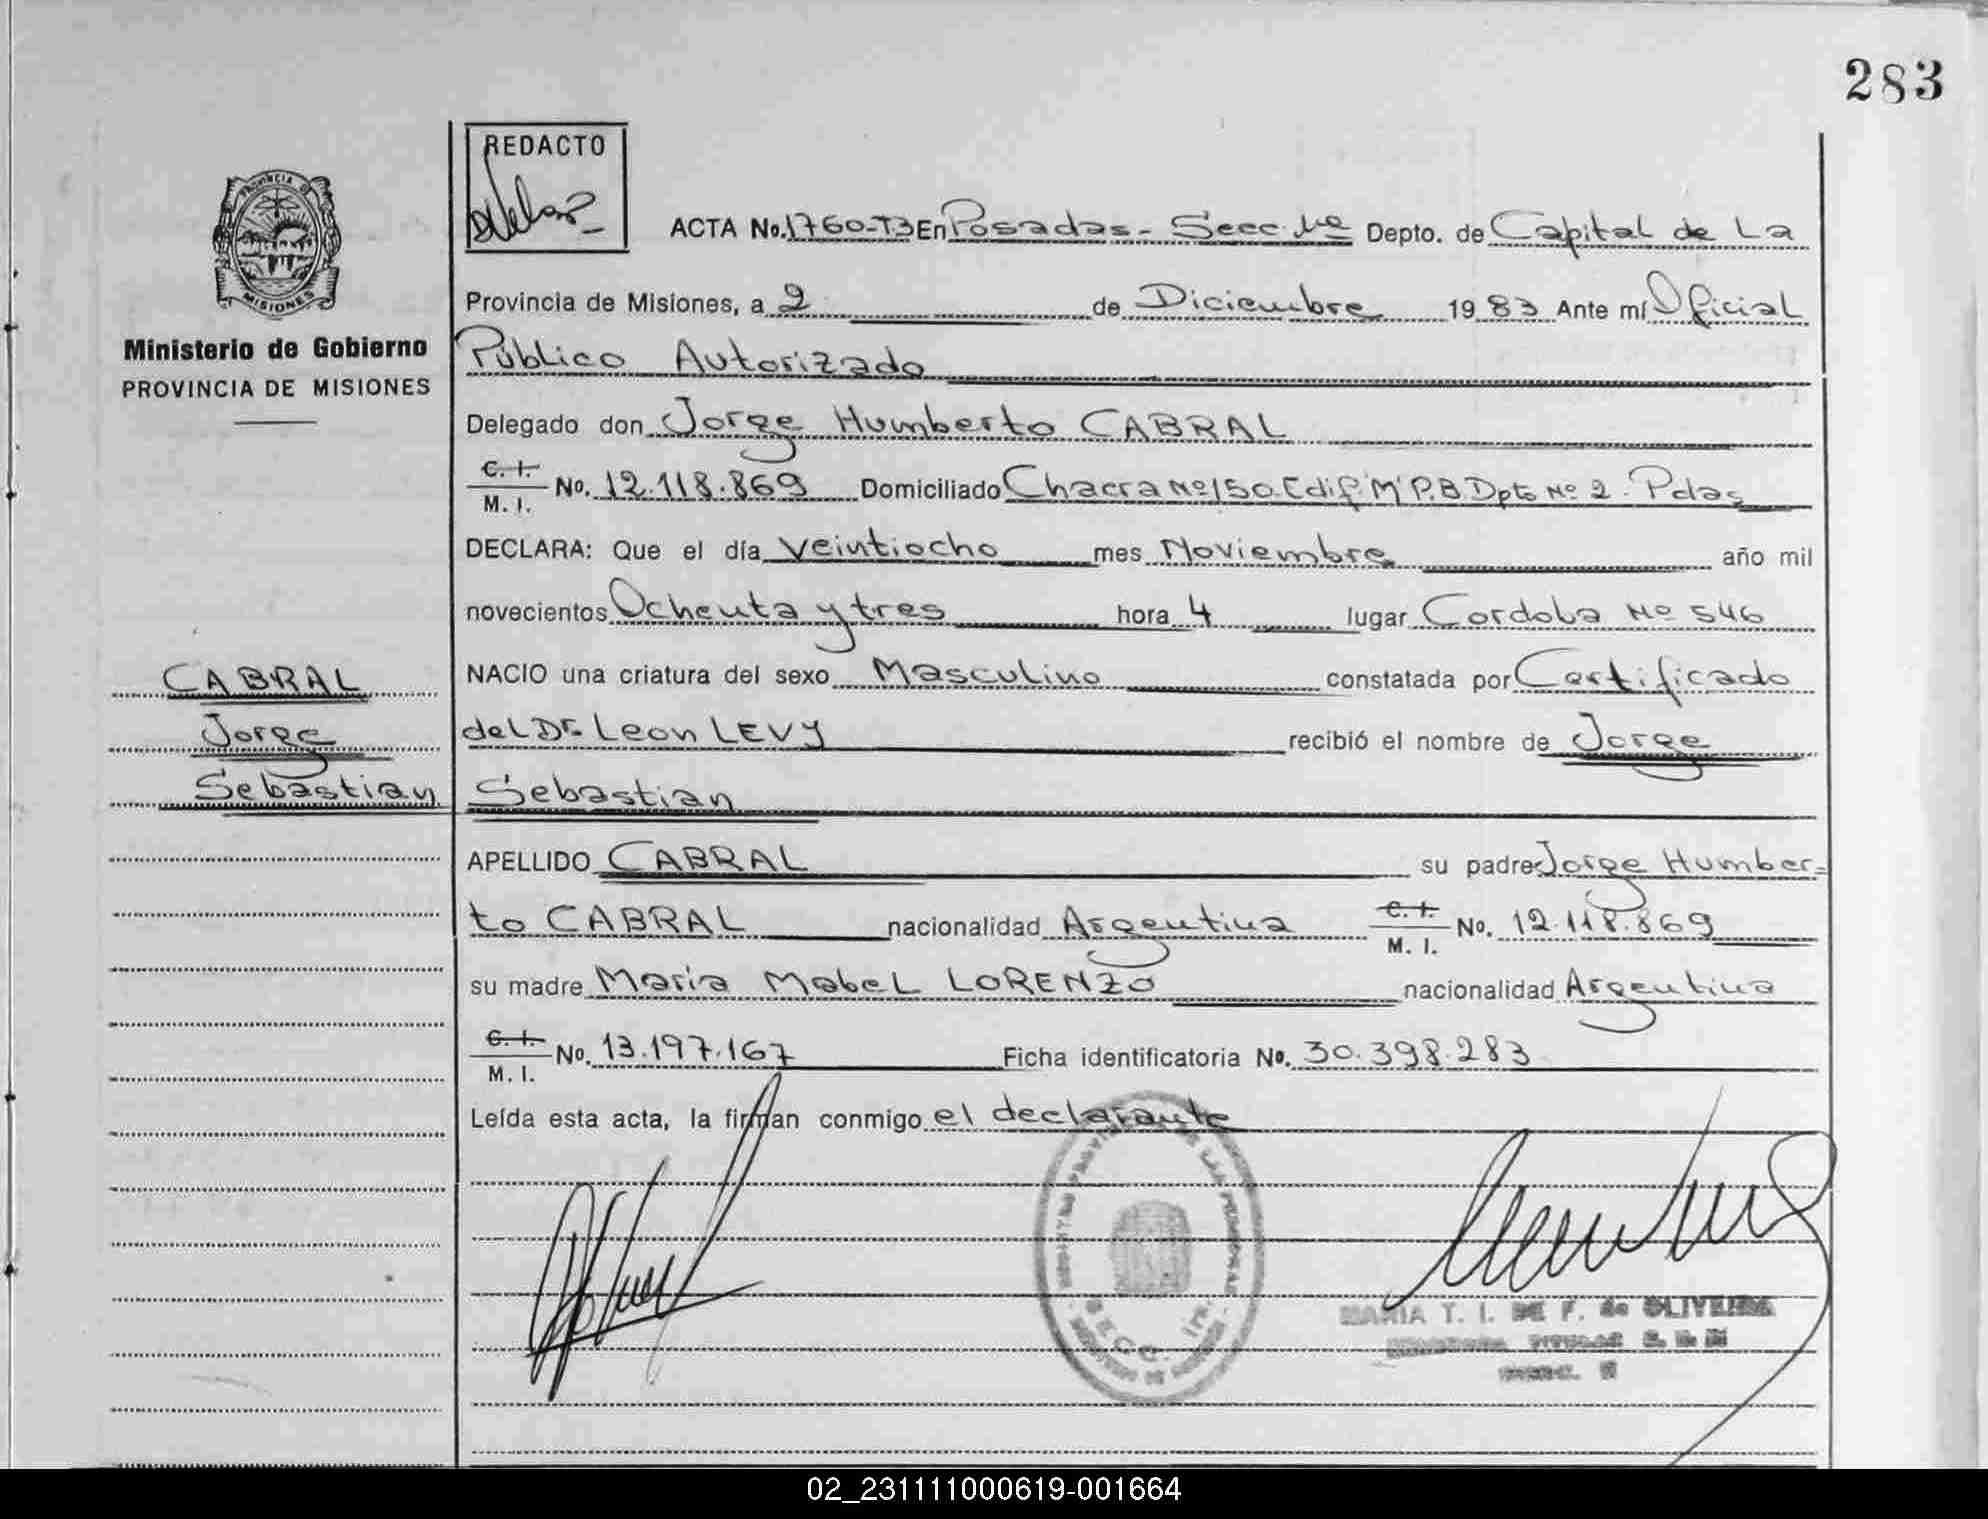 283
REDACTO
ACTA No. 1760-T3 En Posadas - Secc. 1ra Depto. de Capital de La
Provincia de Misiones, a 2 de Diciembre 1983 Ante mí Oficial
Público Autorizado
Delegado don Jorge Humberto CABRAL
C. I.
M. I. No. 12.118.869 Domiciliado Chacra Nº 150. Edif. "M" P.B Dpto Nº 2. Pdas
DECLARA: Que el día Veintiocho mes Noviembre año mil
novecientos Ochenta y tres hora 4 lugar Cordoba Nº 546
NACIO una criatura del sexo Masculino constatada por Certificado
del Dr. Leon LEVY recibió el nombre de Jorge
Sebastian
APELLIDO CABRAL su padre Jorge Humber=
to CABRAL nacionalidad Argentina C. I. M. I. No. 12.118.869
su madre Maria Mabel LORENZO nacionalidad Argentina
C. I.
M. I. No. 13.197.167 Ficha identificatoria No. 30.398.283
Leída esta acta, la firman conmigo el declarante
PROVINCIA D
MISIONES
Ministerio de Gobierno
PROVINCIA DE MISIONES
CABRAL
Jorge
Sebastian
SECC. 1ra.
MARIA T. I. DE F. de OLIVEIRA
02_231111000619-001664